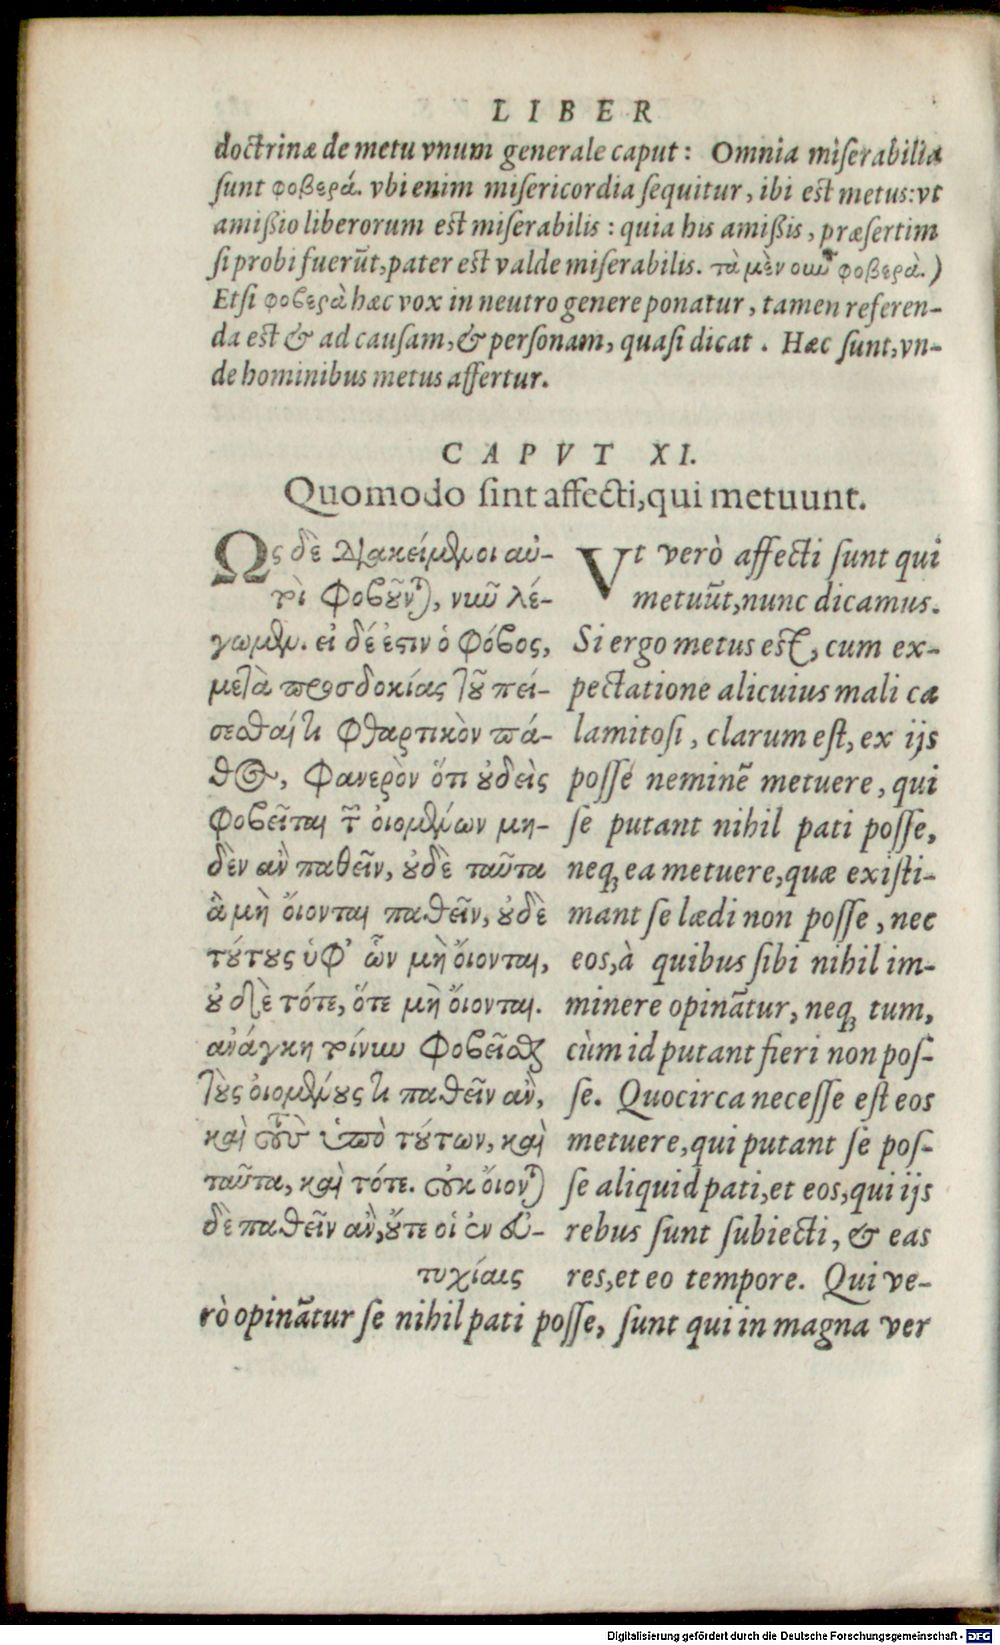 LIBER
doctrinæ de metu vnum generale caput: Omnia miſerabilia
ſunt φοβερά. vbi enim miſericordia ſequitur, ibi est metus: vt
amißio liberorum est miſerabilis: quia his amißis, præſertim
ſi probi fuerũt, pater est valde miſerabilis. τὰ μὲν οὖν φοβερὰ.)
Etſi φοβερὰ hæc vox in neutro genere ponatur, tamen referen-
da est & ad cauſam, & perſonam, quaſi dicat. Hæc ſunt, vn-
de hominibus metus affertur.
CAPVT XI.
Quomodo ſint affecti, qui metuunt.
Ὡς δὲ διακείμενοι αὐ-
τοὶ φοβοῦνται, νῦν λέ-
γωμεν. εἰ δέ ἐστιν ὁ φόβος,
μετὰ προσδοκίας τοῦ πεί-
σεσθαί τι φθαρτικὸν πά-
θος, φανερὸν ὅτι οὐδεὶς
φοβεῖται τῶν οἰομένων μη-
δὲν ἂν παθεῖν, οὐδὲ ταῦτα
ἃ μὴ οἴονται παθεῖν, οὐδὲ
τούτους ὑφ' ὧν μὴ οἴονται,
οὐδὲ τότε, ὅτε μὴ οἴονται.
ἀνάγκη τοίνυν φοβεῖσθαι
τοὺς οἰομένους τι παθεῖν ἂν,
καὶ τοὺς ὑπὸ τούτων, καὶ
ταῦτα, καὶ τότε. οὐκ οἴονται
δὲ παθεῖν ἂν, οὔτε οἱ ἐν εὐ-
τυχίαις
Vt verò affecti ſunt qui
metuũt, nunc dicamus.
Si ergo metus est, cum ex-
pectatione alicuius mali ca
lamitoſi, clarum eſt, ex ijs
poſſe neminẽ metuere, qui
ſe putant nihil pati poſſe,
neq; ea metuere, quæ exiſti-
mant ſe lædi non poſſe, nec
eos, à quibus ſibi nihil im-
minere opinãtur, neq; tum,
cùm id putant fieri non poſ-
ſe. Quocirca neceſſe eſt eos
metuere, qui putant ſe poſ-
ſe aliquid pati, et eos, qui ijs
rebus ſunt ſubiecti, & eas
res, et eo tempore. Qui ve-
rò opinãtur ſe nihil pati poſſe, ſunt qui in magna ver
Digitalisierung gefördert durch die Deutsche Forschungsgemeinschaft - DFG